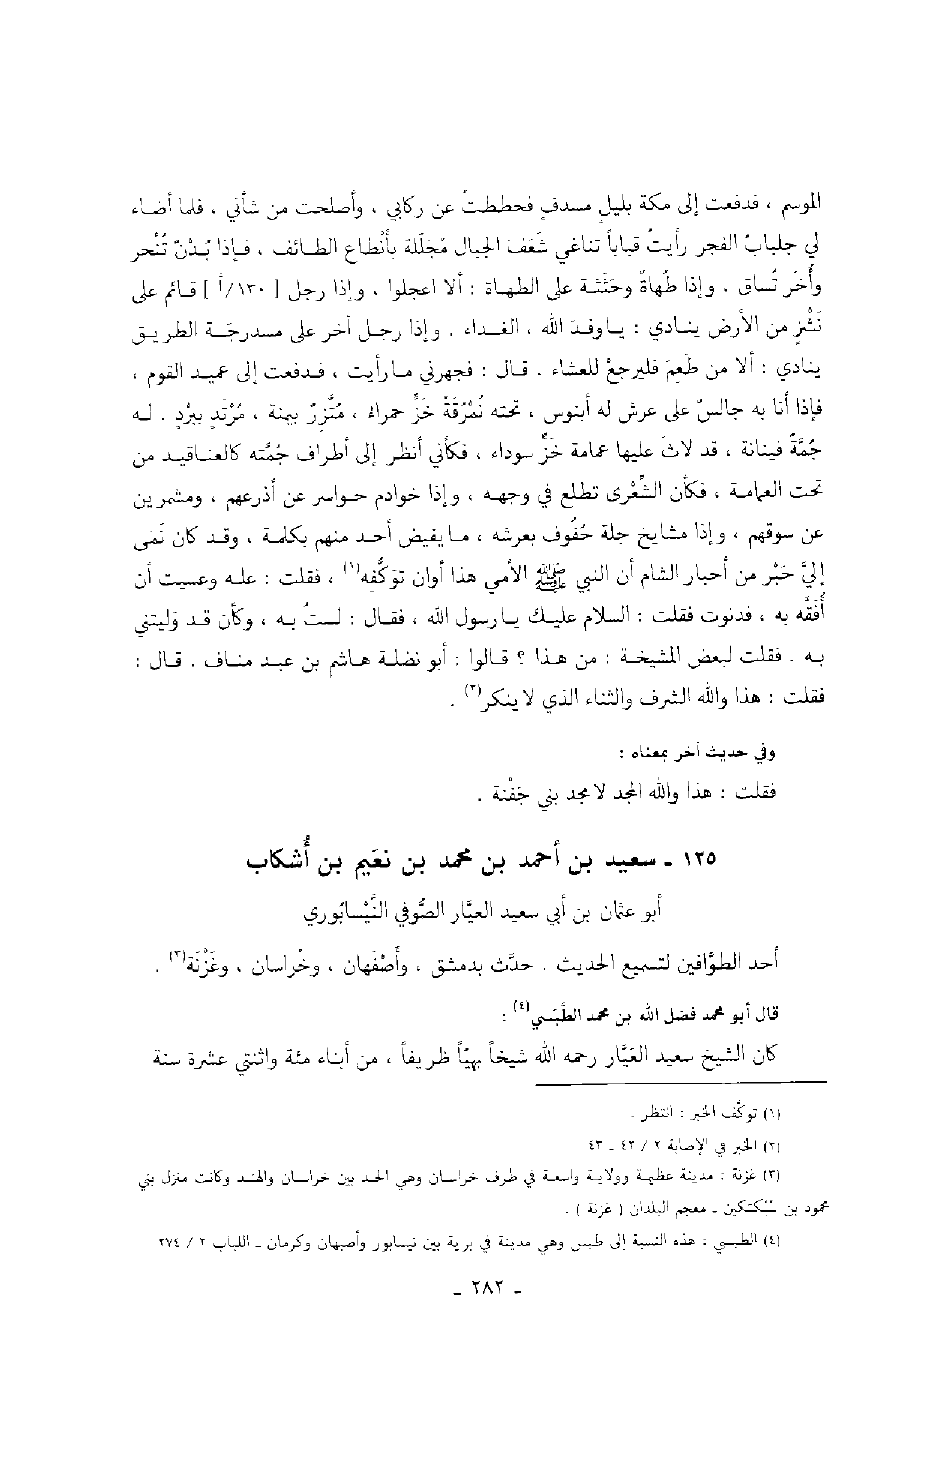 الموسم ، فدفعت إلى مكة بليلٍ مسدفٍ فحططتُ عن ركابي ، وأصلحت من شأني ، فلما أضاء
لي جلبابُ الفجر رأيتُ قباباً تناغي شَعَفَ الجبال مُجَلّلة بأنْطاع الطائف ، فإذا بُدْنٌ تُنْحر
وأُخَر تُساق . وإذا طُهاةٌ وحَثَثَة على الطهاة : ألا اعجلوا ، وإذا رجل [ ١٣٠/أ ] قائم على
نَشْزٍ من الأرض ينادي : ياوفدَ الله ، الغداء . وإذا رجل آخر على مدرجَة الطريق
ينادي : ألا من طَعِمَ فليرجعْ للعشاء . قال : فجهرني مارأيت ، فدفعت إلى عميد القوم ،
فإذا أنا به جالسٌ على عرش له أبنوس ، تحته نُمْرُقَةُ خَزٍّ حمراء ، مُتَّزرٌ بيمنة ، مُرْتَدٍ ببُرْدٍ . له
جُمَّةٌ فينانة ، قد لاثَ عليها عمامة خَزٍّ سوداء ، فكأني أنظر إلى أطراف جُمَّته كالعناقيد من
تحت العمامة ، فكأن الشِّعْرى تطلع في وجهه ، وإذا خوادم حواسر عن أذرعهم ، ومشمرين
عن سوقهم ، وإذا مشايخ جلة حُفُوف بعرشه ، مايفيض أحد منهم بكلمة ، وقد كان نَمَى
إليَّ خَبْر من أحبار الشام أن النبي ﷺ الأمي هذا أوان توَكُّفِه(١) ، فقلت : عله وعسيت أن
أُفَقَّه به ، فدنوت فقلت : السلام عليك يارسول الله ، فقال : لستُ به ، وكأن قد وَليتني
به . فقلت لبعض المشيخة : من هذا ؟ قالوا : أبو نضلة هاشم بن عبد مناف . قال :
فقلت : هذا والله الشرف والثناء الذي لاينكر(٢) .
وفي حديث آخر بمعناه :
فقلت : هذا والله المجد لامجد بني جَفْنة .
١٢٥ ـ سعيد بن أحمد بن محمد بن نعَيم بن أُشكاب
أبو عثمان بن أبي سعيد العيَّار الصُّوفي النَّيْسابُوري
أحد الطوَّافين لتسميع الحديث . حدَّث بدمشق ، وأَصْفَهان ، وخُراسان ، وغَزْنَة(٣) .
قال أبو محمد فضل الله بن محمد الطَّبَسي(٤) :
كان الشيخ سعيد العَيَّار رحمه الله شيخاً بهيّاً ظريفاً ، من أبناء مئة واثنتي عشرة سنة
(١) توكَّف الخبر : انتظر .
(٢) الخبر في الإصابة ٢ / ٤٢ ـ ٤٣
(٣) غزنة : مدينة عظيمة وولاية واسعة في طرف خراسان وهي الحد بين خراسان والهند وكانت منزل بني
محمود بن سُبُكتكين ـ معجم البلدان ( غزنة ) .
(٤) الطبسي : هذه النسبة إلى طبس وهي مدينة في برية بين نيسابور وأصبهان وكرمان ـ اللباب ٢ / ٢٧٤
ـ ٢٨٢ ـ